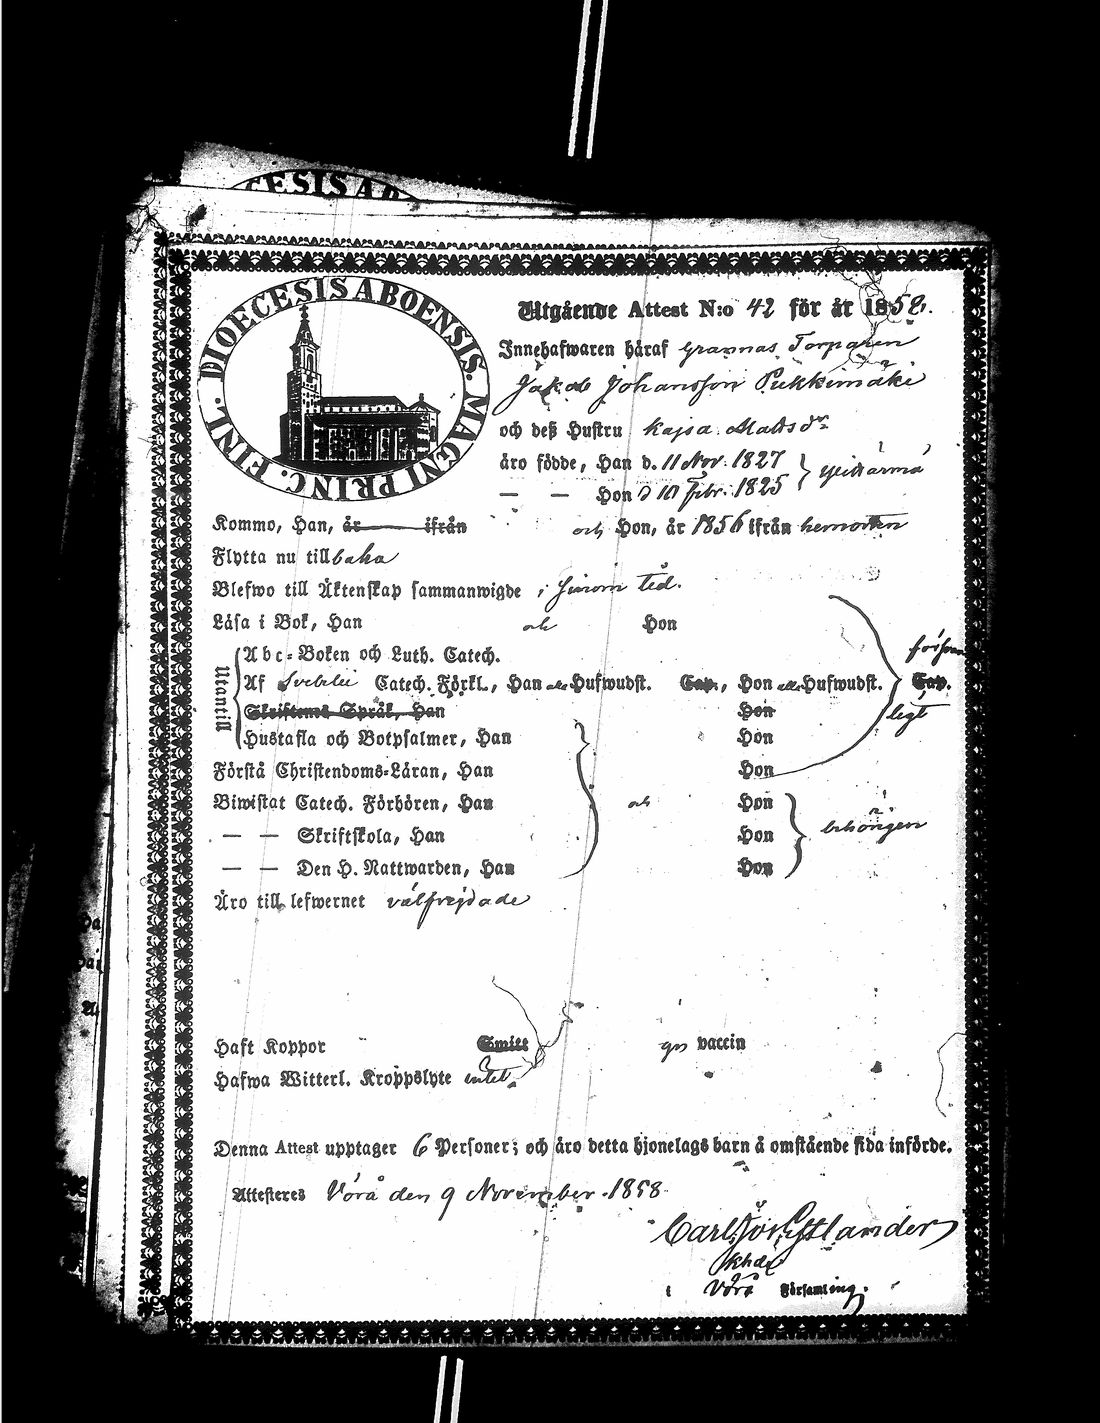 CESIS AB
DIOECESIS ABOENSIS. MAGNI PRINC. FINL.
Utgående Attest N:o 42 för år 1858.
Innehafwaren häraf Torparen
Jakob Johansson Pukkimäki
och deß Hustru Kajsa Matsdr
äro födde, Han d. 11 Nov. 1827
— — Hon d 10 Febr. 1825
Kommo, Han, är ifrån och Hon, år 1856 ifrån hemorten
Flytta nu tillbaka
Blefwo till Äktenskap sammanwigde i
Läsa i Bok, Han och Hon
Utantill
Abc-Boken och Luth. Catech.
Af Svebilii Catech. Förkl., Han alla Hufwudst. Cap., Hon alla Hufwudst. Cap.
Skriftens Språk, Han Hon
Hustafla och Botpsalmer, Han Hon
Förstå Christendoms-Läran, Han Hon
Biwistat Catech. Förhören, Han och Hon
— — Skriftskola, Han Hon
— — Den H. Nattwarden, Han Hon
behörigen
Äro till lefwernet välfrejdade
Haft Koppor Smitt vaccin
Hafwa Witterl. Kroppslyte intet.
Denna Attest upptager 6 Personer; och äro detta hjonelags barn å omstående sida införde.
Attesteres Vörå den 9 November 1858.
Carl Estlander
khde
i Vörå Församling.